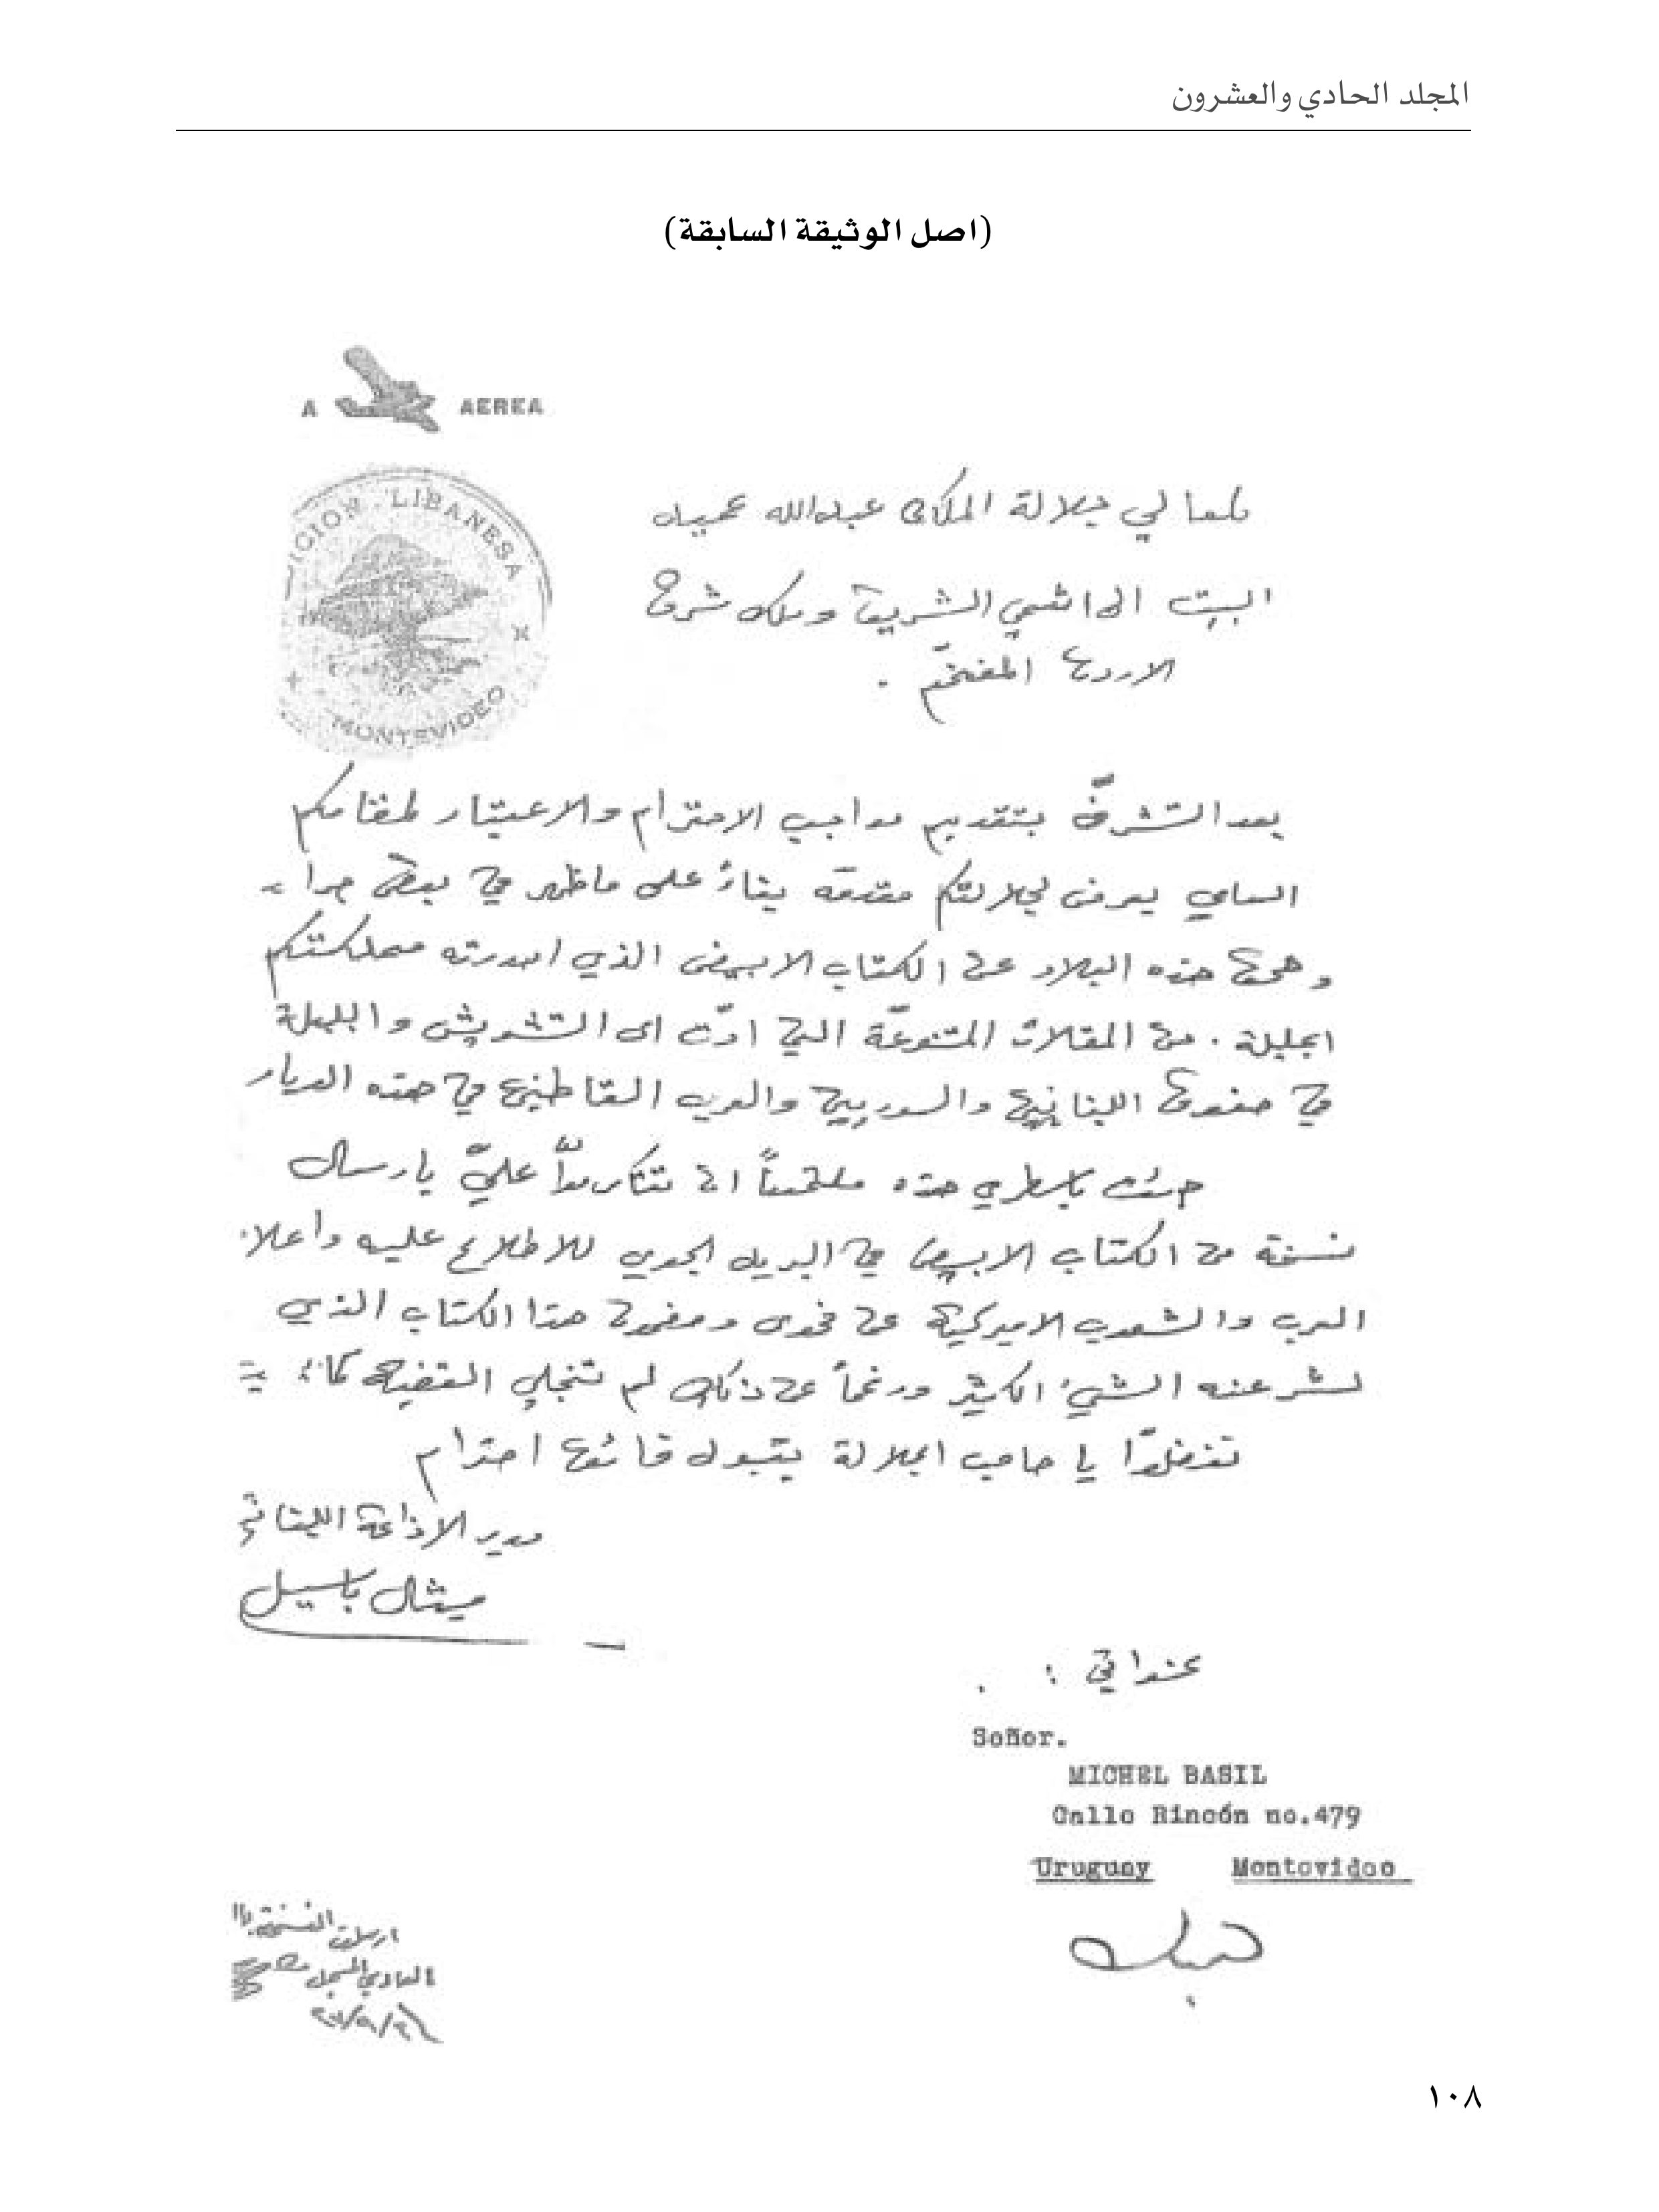 المجلد الحادي والعشرون
(اصل الوثيقة السابقة)
A AEREA
ICION LIBANESA
MONTEVIDEO
جلالة الملك عبدالله عميد
البيت الهاشمي الشريف وملك شرق
الاردن المفخّم .
بعد التشرّف بتقديم مواجب الاحترام والاعتبار لمقامكم
السامي يعرض لجلالتكم مقدمه بناءً على ما ظهر في بعض جرائد
وصحف هذه البلاد عن الكتاب الابيض الذي اصدرته مملكتكم
الجليلة . من المقالات المتنوعّة التي ادّت الى التشويش والبلبلة
في صفوف اللبنانيين والسوريين والعرب القاطنين في هذه الديار
جئت باسطري هذه ملتمساً ان تتكرموّا عليّ بارسال
نسخة من الكتاب الابيض في البريد الجوي للاطلاع عليه واعلان
العرب والشعوب الاميركية عن فحوى ومضمون هذا الكتاب الذي
نشر عنه الشيء الكثير ورغماً عن ذلك لم تنجلي القضية
تفضلوّا يا صاحب الجلالة بقبول فائق احترام
مدير الاذاعة اللبنانية
ميشال باسيل
عنواني :
Señor.
MICHEL BASIL
Calle Rincón no.479
Uruguay Montevideo
ارسلت النسخة
العادي المسجل
١٠٨